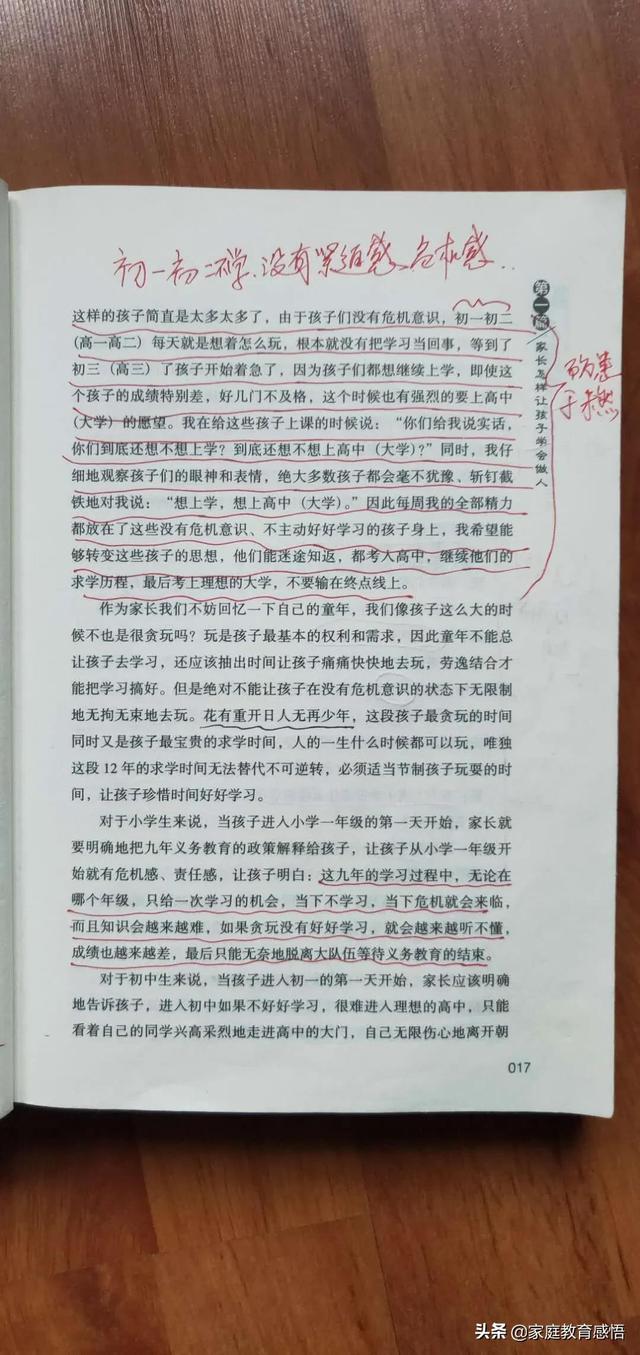 初一初二不学,没有紧迫感、危机感..
第一篇 家长怎样让孩子学会做人
这样的孩子简直是太多太多了，由于孩子们没有危机意识，初一初二
（高一高二）每天就是想着怎么玩，根本就没有把学习当回事，等到了
初三（高三）了孩子开始着急了，因为孩子们都想继续上学，即使这
个孩子的成绩特别差，好几门不及格，这个时候也有强烈的要上高中
（大学）的愿望。我在给这些孩子上课的时候说：“你们给我说实话，
你们到底还想不想上学？到底还想不想上高中（大学）？”同时，我仔
细地观察孩子们的眼神和表情，绝大多数孩子都会毫不犹豫、斩钉截
铁地对我说：“想上学，想上高中（大学）。”因此每周我的全部精力
都放在了这些没有危机意识、不主动好好学习的孩子身上，我希望能
够转变这些孩子的思想，他们能迷途知返，都考入高中，继续他们的
求学历程，最后考上理想的大学，不要输在终点线上。
作为家长我们不妨回忆一下自己的童年，我们像孩子这么大的时
候不也是很贪玩吗？玩是孩子最基本的权利和需求，因此童年不能总
让孩子去学习，还应该抽出时间让孩子痛痛快快地去玩，劳逸结合才
能把学习搞好。但是绝对不能让孩子在没有危机意识的状态下无限制
地无拘无束地去玩。花有重开日人无再少年，这段孩子最贪玩的时间
同时又是孩子最宝贵的求学时间，人的一生什么时候都可以玩，唯独
这段 12 年的求学时间无法替代不可逆转，必须适当节制孩子玩耍的时
间，让孩子珍惜时间好好学习。
对于小学生来说，当孩子进入小学一年级的第一天开始，家长就
要明确地把九年义务教育的政策解释给孩子，让孩子从小学一年级开
始就有危机感、责任感，让孩子明白：这九年的学习过程中，无论在
哪个年级，只给一次学习的机会，当下不学习，当下危机就会来临，
而且知识会越来越难，如果贪玩没有好好学习，就会越来越听不懂，
成绩也越来越差，最后只能无奈地脱离大队伍等待义务教育的结束。
对于初中生来说，当孩子进入初一的第一天开始，家长应该明确
地告诉孩子，进入初中如果不好好学习，很难进入理想的高中，只能
看着自己的同学兴高采烈地走进高中的大门，自己无限伤心地离开朝
017
头条 @家庭教育感悟